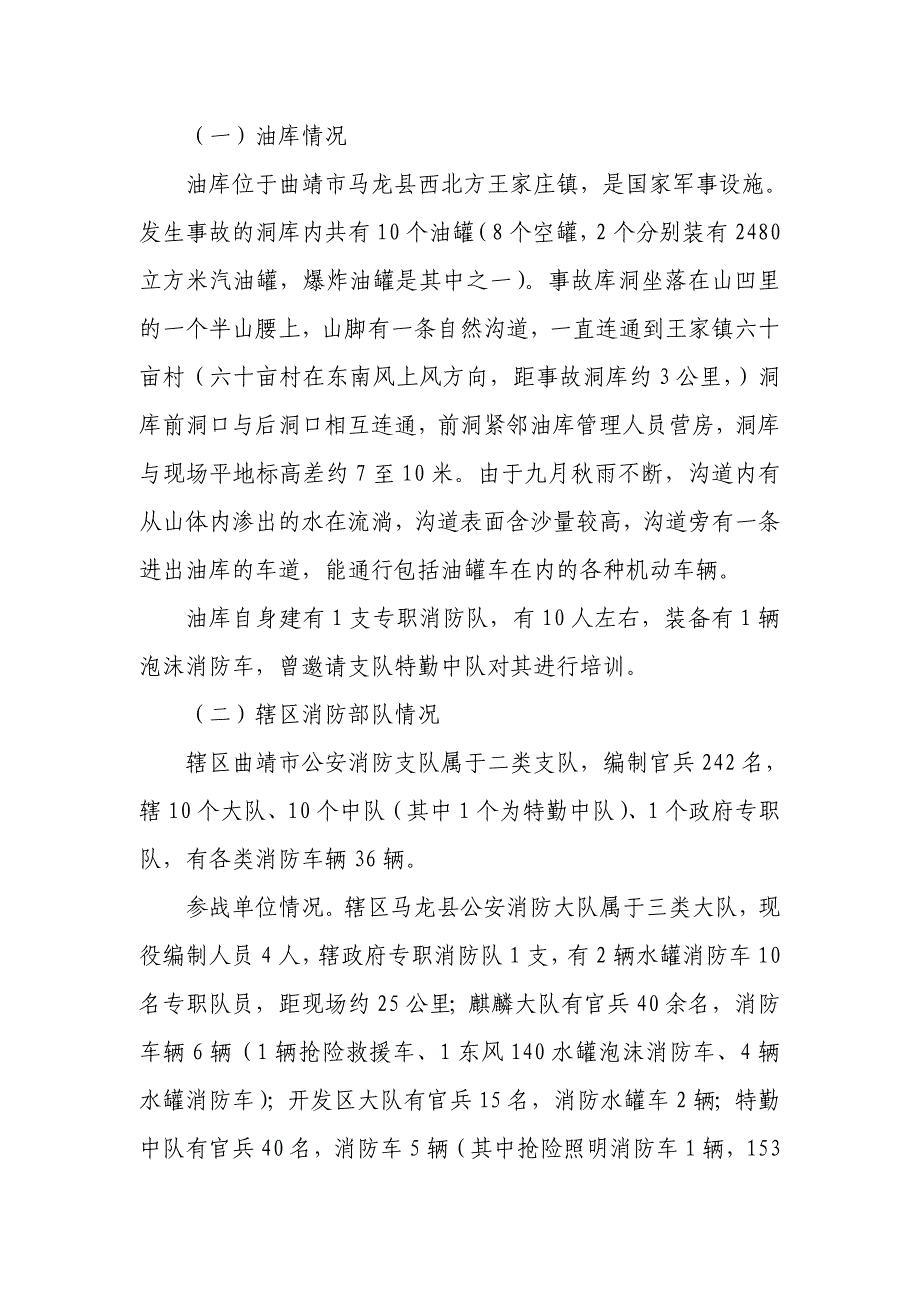 （一）油库情况
油库位于曲靖市马龙县西北方王家庄镇，是国家军事设施。
发生事故的洞库内共有10个油罐（8个空罐，2个分别装有2480
立方米汽油罐，爆炸油罐是其中之一）。事故库洞坐落在山凹里
的一个半山腰上，山脚有一条自然沟道，一直连通到王家镇六十
亩村（六十亩村在东南风上风方向，距事故洞库约3公里，）洞
库前洞口与后洞口相互连通，前洞紧邻油库管理人员营房，洞库
与现场平地标高差约7至10米。由于九月秋雨不断，沟道内有
从山体内渗出的水在流淌，沟道表面含沙量较高，沟道旁有一条
进出油库的车道，能通行包括油罐车在内的各种机动车辆。
油库自身建有1支专职消防队，有10人左右，装备有1辆
泡沫消防车，曾邀请支队特勤中队对其进行培训。
（二）辖区消防部队情况
辖区曲靖市公安消防支队属于二类支队，编制官兵242名，
辖10个大队、10个中队（其中1个为特勤中队）、1个政府专职
队，有各类消防车辆36辆。
参战单位情况。辖区马龙县公安消防大队属于三类大队，现
役编制人员4人，辖政府专职消防队1支，有2辆水罐消防车10
名专职队员，距现场约25公里；麒麟大队有官兵40余名，消防
车辆6辆（1辆抢险救援车、1东风140水罐泡沫消防车、4辆
水罐消防车）；开发区大队有官兵15名，消防水罐车2辆；特勤
中队有官兵40名，消防车5辆（其中抢险照明消防车1辆，153